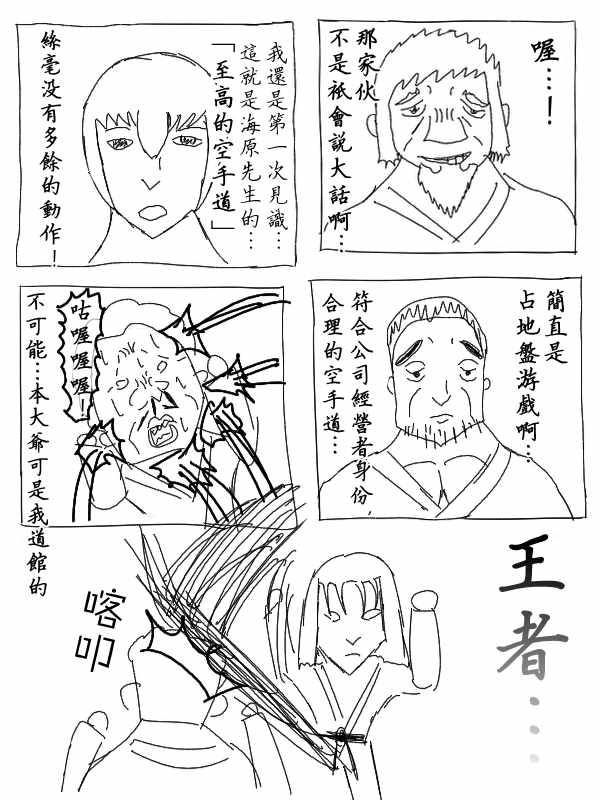 喔…！
那家伙
不是衹會説大話啊…
我還是第一次見識…
這就是海原先生的…
「至高的空手道」
絲毫没有多餘的動作！
簡直是
占地盤游戲啊…
符合公司經營者身份
合理的空手道…
咕喔喔喔！
不可能…本大爺可是我道館的
王者…
喀叩